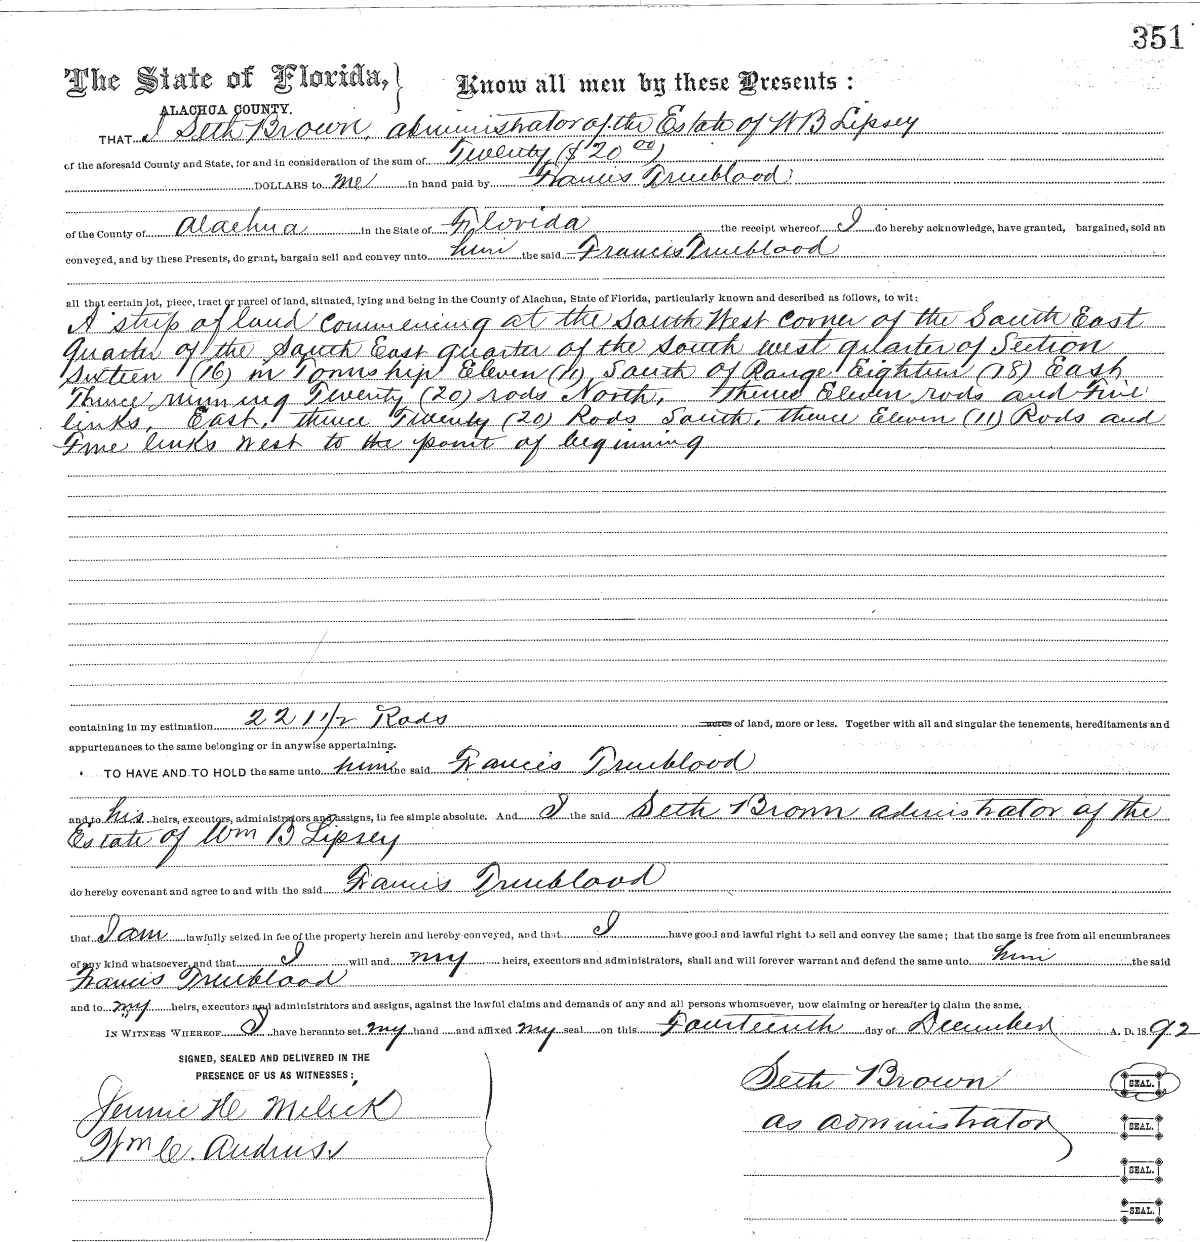 351
The State of Florida, } Know all men by these Presents :
ALACHUA COUNTY.
THAT I Seth Brown, administrator of the Estate of W B Lipsey
of the aforesaid County and State, for and in consideration of the sum of Twenty ($20 00)
DOLLARS to me in hand paid by Francis Trueblood
of the County of Alachua in the State of Florida the receipt whereof I do hereby acknowledge, have granted, bargained, sold an
conveyed, and by these Presents, do grant, bargain sell and convey unto him the said Francis Trueblood
all that certain lot, piece, tract or parcel of land, situated, lying and being in the County of Alachua, State of Florida, particularly known and described as follows, to wit:
A strip of land commencing at the South West corner of the South East
quarter of the South East quarter of the south west quarter of Section
Sixteen (16) in Township Eleven (11) South of Range Eighteen (18) East
Thence running Twenty (20) rods North, thence Eleven rods and Five
links, East, thence Twenty (20) Rods South, thence Eleven (11) Rods and
Five links West to the point of beginning
containing in my estimation 221 1/2 Rods acres of land, more or less. Together with all and singular the tenements, hereditaments and
appurtenances to the same belonging or in anywise appertaining.
TO HAVE AND TO HOLD the same unto him the said Francis Trueblood
and to his heirs, executors, administrators and assigns, in fee simple absolute. And I the said Seth Brown adminstrator of the
Estate of Wm B Lipsey
do hereby covenant and agree to and with the said Francis Trueblood
that I am lawfully seized in fee of the property herein and hereby conveyed, and that I have good and lawful right to sell and convey the same; that the same is free from all encumbrances
of any kind whatsoever, and that I will and my heirs, executors and administrators, shall and will forever warrant and defend the same unto him the said
Francis Trueblood
and to my heirs, executors and administrators and assigns, against the lawful claims and demands of any and all persons whomsoever, now claiming or hereafter to claim the same.
IN WITNESS WHEREOF I have hereunto set my hand and affixed my seal on this Fourteenth day of December A. D. 18 92
SIGNED, SEALED AND DELIVERED IN THE
PRESENCE OF US AS WITNESSES:
Seth Brown SEAL.
Jennie H Melick
as administrator SEAL.
Wm C. Andruss
SEAL.
SEAL.